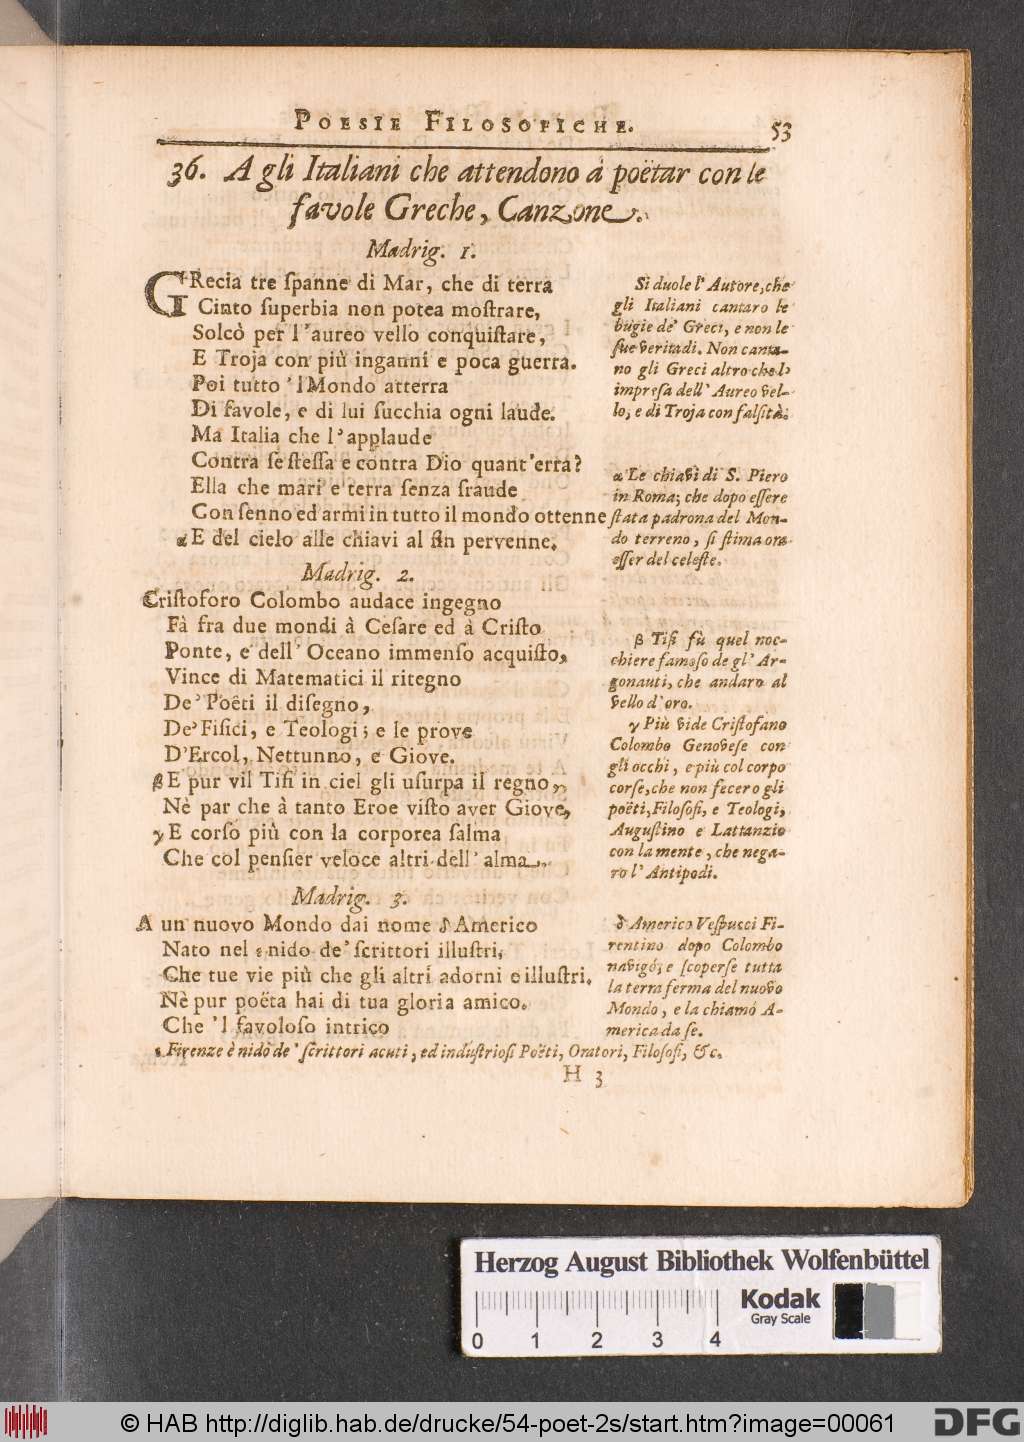 POESIE FILOSOFICHE.
53
36. A gli Italiani che attendono à poëtar con le
favole Greche, Canzone.
Madrig. 1.
GRecia tre ſpanne di Mar, che di terra
Cinto ſuperbia non potea moſtrare,
Solcò per l'aureo vello conquiſtare,
E Troja con più inganni e poca guerra.
Poi tutto 'l Mondo atterra
Di favole, e di lui ſucchia ogni laude.
Ma Italia che l'applaude
Contra ſe ſteſſa e contra Dio quant'erra?
Ella che mari e terra ſenza fraude
Con ſenno ed armi in tutto il mondo ottenne
α E del cielo alle chiavi al fin pervenne.
Si duole l'Autore, che
gli Italiani cantaro le
bugie de' Greci, e non le
ſue veritadi. Non canta-
no gli Greci altro che l'
impreſa dell' Aureo vel-
lo, e di Troja con falſità.
α Le chiavi di S. Piero
in Roma; che dopo eſſere
ſtata padrona del Mon-
do terreno, ſi ſtima ora
eſſer del celeſte.
Madrig. 2.
Criſtoforo Colombo audace ingegno
Fà fra due mondi à Ceſare ed à Criſto
Ponte, e dell' Oceano immenſo acquiſto,
Vince di Matematici il ritegno
De' Poëti il diſegno,
De' Fiſici, e Teologi; e le prove
D'Ercol, Nettunno, e Giove.
β E pur vil Tiſi in ciel gli uſurpa il regno,
Nè par che à tanto Eroe viſto aver Giove,
γ E corſo più con la corporea ſalma
Che col penſier veloce altri dell' alma.
β Tiſi fù quel noc-
chiere famoſo de gl' Ar-
gonauti, che andaro al
vello d'oro.
γ Più vide Criſtofano
Colombo Genoveſe con
gli occhi, e più col corpo
corſe, che non fecero gli
poëti, Filoſofi, e Teologi,
Auguſtino e Lattanzio
con la mente, che nega-
ro l' Antipodi.
Madrig. 3.
A un nuovo Mondo dai nome δ Americo
Nato nel ε nido de' ſcrittori illuſtri,
Che tue vie più che gli altri adorni e illuſtri.
Nè pur poëta hai di tua gloria amico.
Che 'l favoloſo intrico
δ Americo Veſpucci Fi-
rentino dopo Colombo
navigó; e ſcoperſe tutta
la terra ferma del nuovo
Mondo, e la chiamó A-
merica da ſe.
ε Firenze è nidò de' ſcrittori acuti, ed induſtrioſi Poëti, Oratori, Filoſofi, &c.
H 3
Herzog August Bibliothek Wolfenbüttel
0 1 2 3 4
Kodak
Gray Scale
© HAB http://diglib.hab.de/drucke/54-poet-2s/start.htm?image=00061
DFG